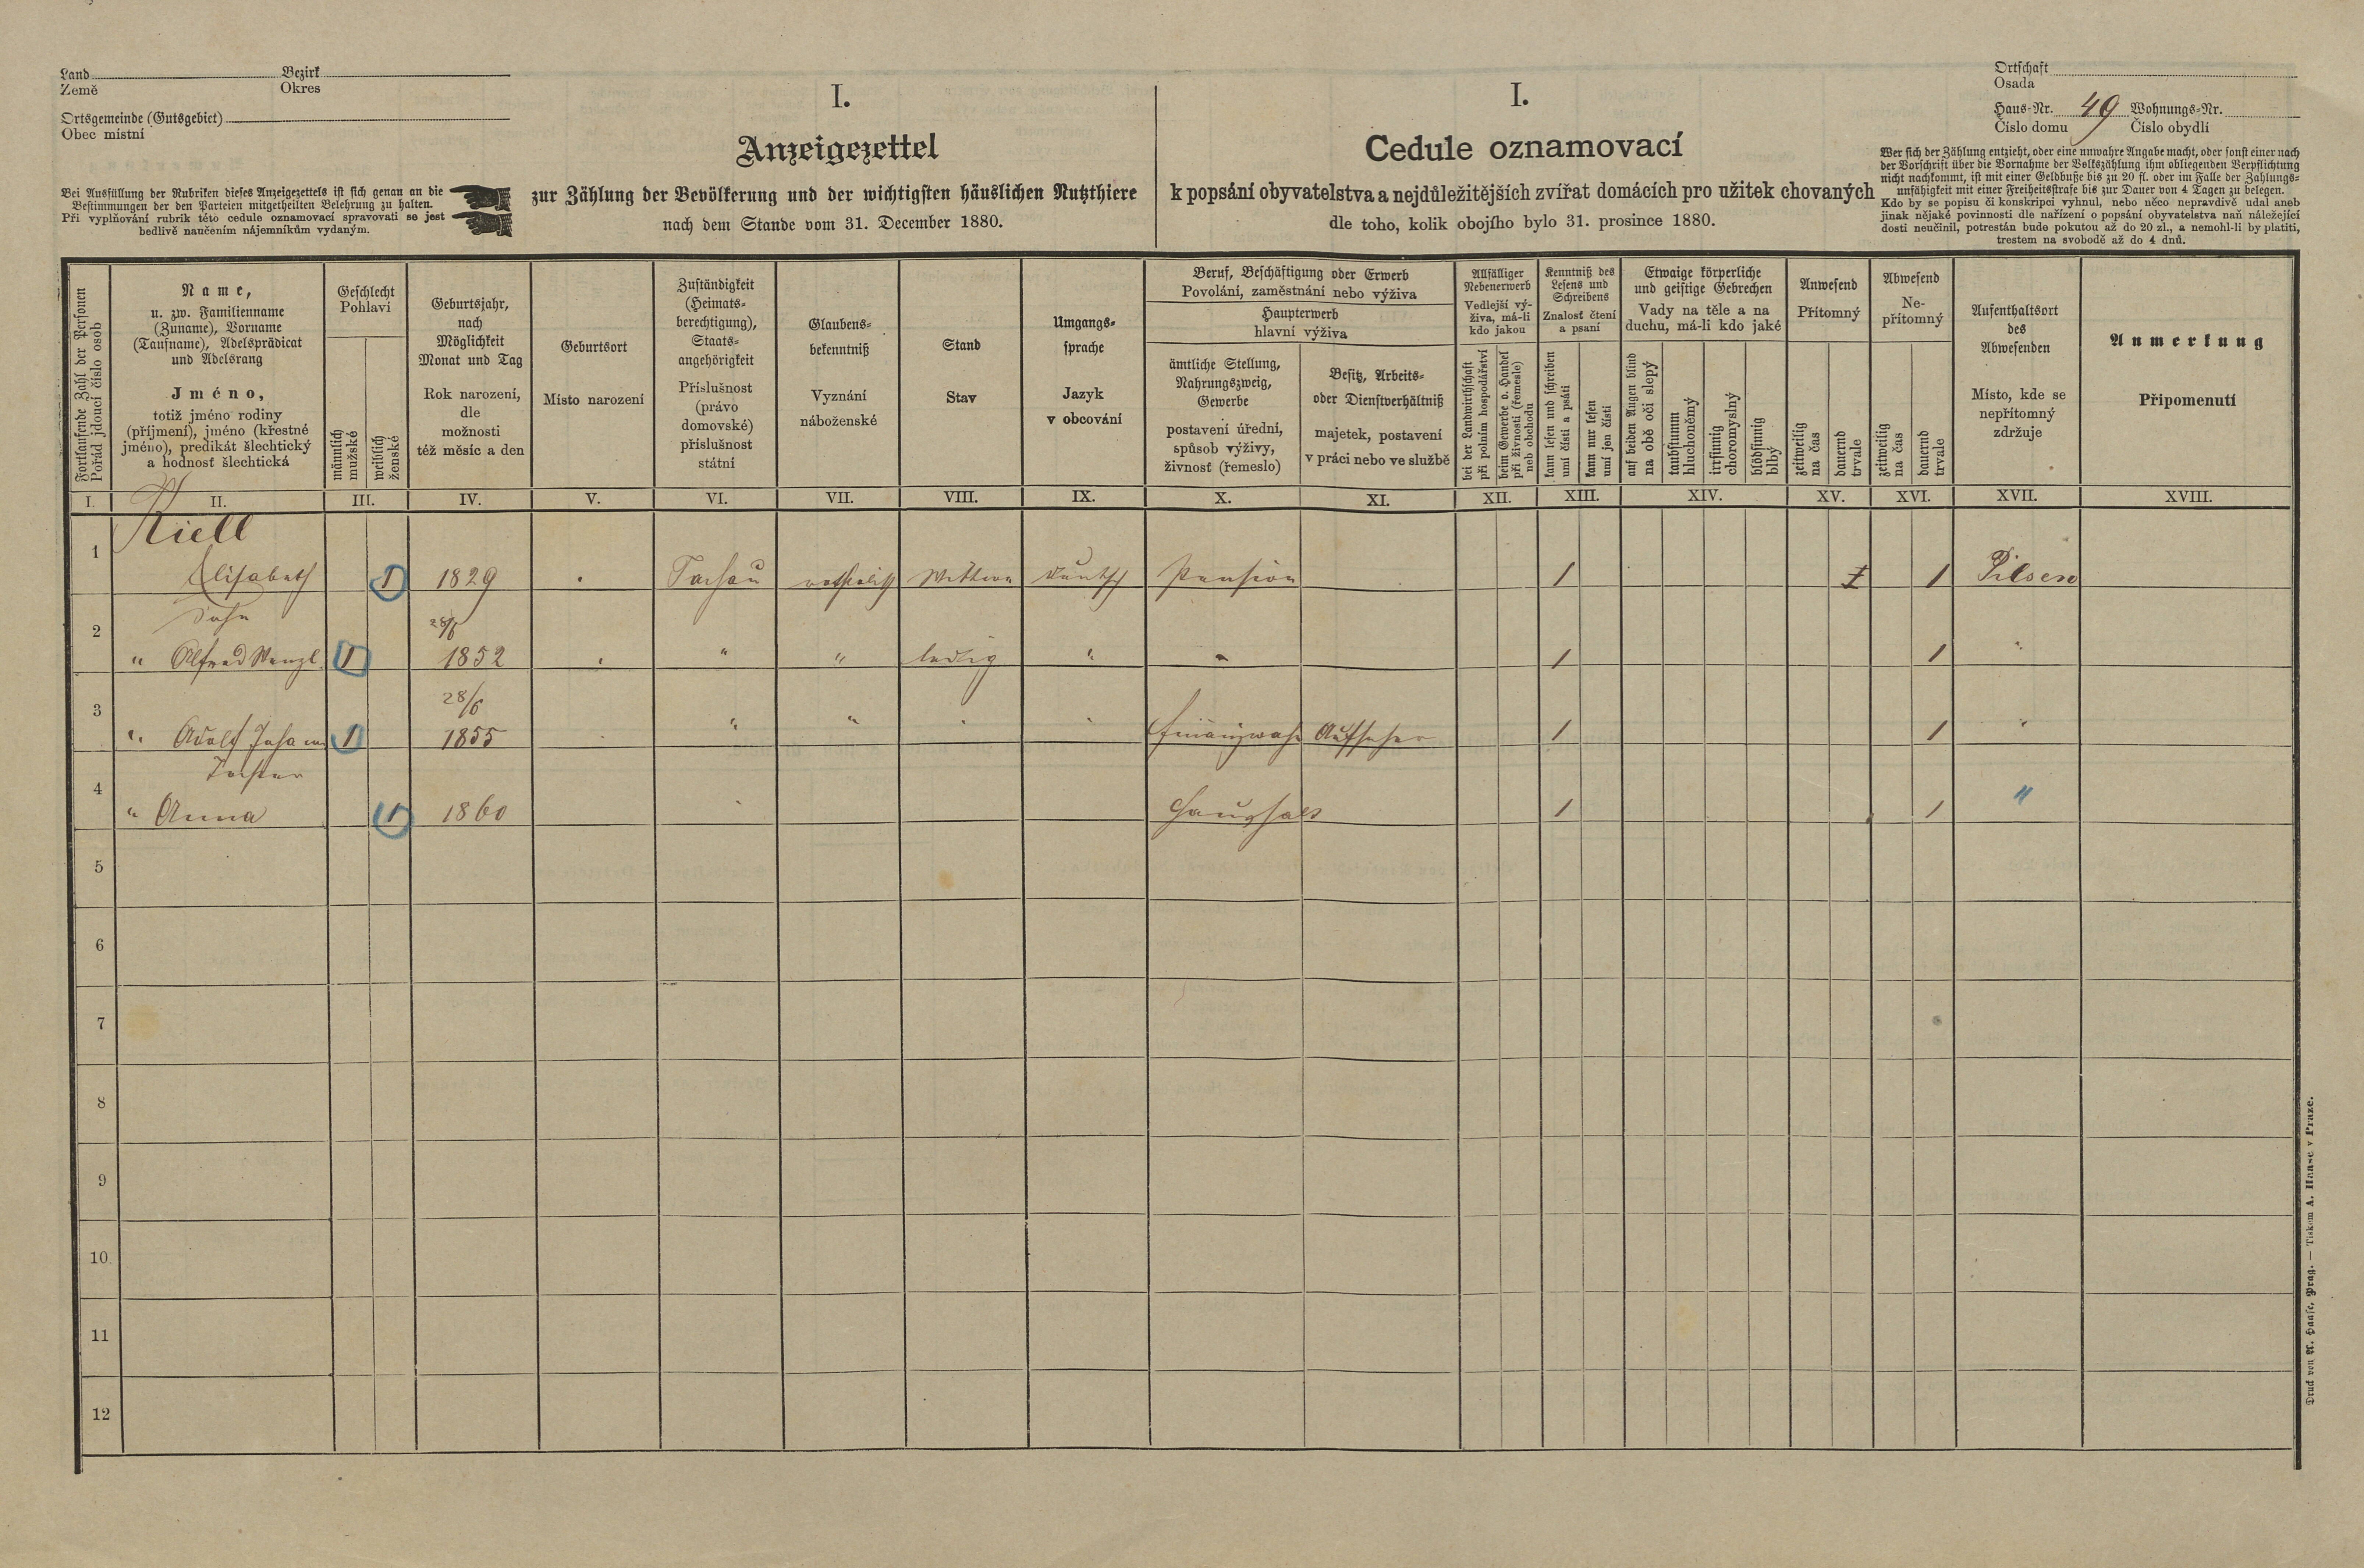 Land Bezirk
Země Okres
Ortsgemeinde (Gutsgebiet)
Obec místní
Bei Ausfüllung der Rubriken dieses Anzeigezettels ist sich genau an die
Bestimmungen der den Parteien mitgetheilten Belehrung zu halten.
Při vyplňování rubrik této cedule oznamovací spravovati se jest
bedlivě naučením nájemníkům vydaným.
I.
Anzeigezettel
zur Zählung der Bevölkerung und der wichtigsten häuslichen Nutzthiere
nach dem Stande vom 31. December 1880.
I.
Cedule oznamovací
k popsání obyvatelstva a nejdůležitějších zvířat domácích pro užitek chovaných
dle toho, kolik obojího bylo 31. prosince 1880.
Ortschaft
Osada
Haus-Nr. 49 Wohnungs-Nr.
Číslo domu Číslo obydlí
Wer sich der Zählung entzieht, oder eine unwahre Angabe macht, oder sonst einer nach
der Vorschrift über die Vornahme der Volkszählung ihm obliegenden Verpflichtung
nicht nachkommt, ist mit einer Geldbuße bis zu 20 fl. oder im Falle der Zahlungs-
unfähigkeit mit einer Freiheitsstrafe bis zur Dauer von 4 Tagen zu belegen.
Kdo by se popisu či konskripci vyhnul, nebo něco nepravdivě udal aneb
jinak nějaké povinnosti dle nařízení o popsání obyvatelstva naň náležející
dosti neučinil, potrestán bude pokutou až do 20 zl., a nemohl-li by platiti,
trestem na svobodě až do 4 dnů.
Fortlaufende Zahl der Personen
Pořád jdoucí číslo osob
Name,
u. zw. Familienname
(Zuname), Vorname
(Taufname), Adelsprädicat
und Adelsrang
Jméno,
totiž jméno rodiny
(příjmení), jméno (křestné
jméno), predikát šlechtický
a hodnosť šlechtická
Geschlecht
Pohlaví
männlich
mužské
weiblich
ženské
Geburtsjahr,
nach
Möglichkeit
Monat und Tag
Rok narození,
dle
možnosti
též měsíc a den
Geburtsort
Místo narození
Zuständigkeit
(Heimats-
berechtigung),
Staats-
angehörigkeit
Příslušnost
(právo
domovské)
příslušnost
státní
Glaubens-
bekenntniß
Vyznání
náboženské
Stand
Stav
Umgangs-
sprache
Jazyk
v obcování
Beruf, Beschäftigung oder Erwerb
Povolání, zaměstnání nebo výživa
Haupterwerb
hlavní výživa
ämtliche Stellung,
Nahrungszweig,
Gewerbe
postavení úřední,
spůsob výživy,
živnosť (řemeslo)
Besitz, Arbeits-
oder Dienstverhältniß
majetek, postavení
v práci nebo ve službě
Allfälliger
Nebenerwerb
Vedlejší vý-
živa, má-li
kdo jakou
bei der Landwirthschaft
při polním hospodářství
beim Gewerbe o. Handel
při živnosti (řemesle)
neb obchodu
Kenntniß des
Lesens und
Schreibens
Znalosť čtení
a psaní
kann lesen und schreiben
umí čísti a psáti
kann nur lesen
umí jen čísti
Etwaige körperliche
und geistige Gebrechen
Vady na těle a na
duchu, má-li kdo jaké
auf beiden Augen blind
na obě oči slepý
taubstumm
hluchoněmý
irrsinnig
choromyslný
blödsinnig
blbý
Anwesend
Přítomný
zeitweilig
na čas
dauernd
trvale
Abwesend
Ne-
přítomný
zeitweilig
na čas
dauernd
trvale
Aufenthaltsort
des
Abwesenden
Místo, kde se
nepřítomný
zdržuje
Anmerkung
Připomenutí
I. II. III. IV. V. VI. VII. VIII. IX. X. XI. XII. XIII. XIV. XV. XVI. XVII. XVIII.
Riell
1 Elisabeth 1 1829 Tachau katholisch Wittwe deutsch Pension 1 1 1 Pilsen
Sohn
28/6
2 " Alfred Wenzl 1 1852 " " ledig " " 1 1 "
28/6
3 " Adolf Johann 1 1855 " " " " Finanzwach Aufseher 1 1 "
Tochter
4 " Anna 1 1860 " Haushalt 1 1 "
5
6
7
8
9
10
11
12
Druck von A. Haase, Prag. — Tiskem A. Haase v Praze.